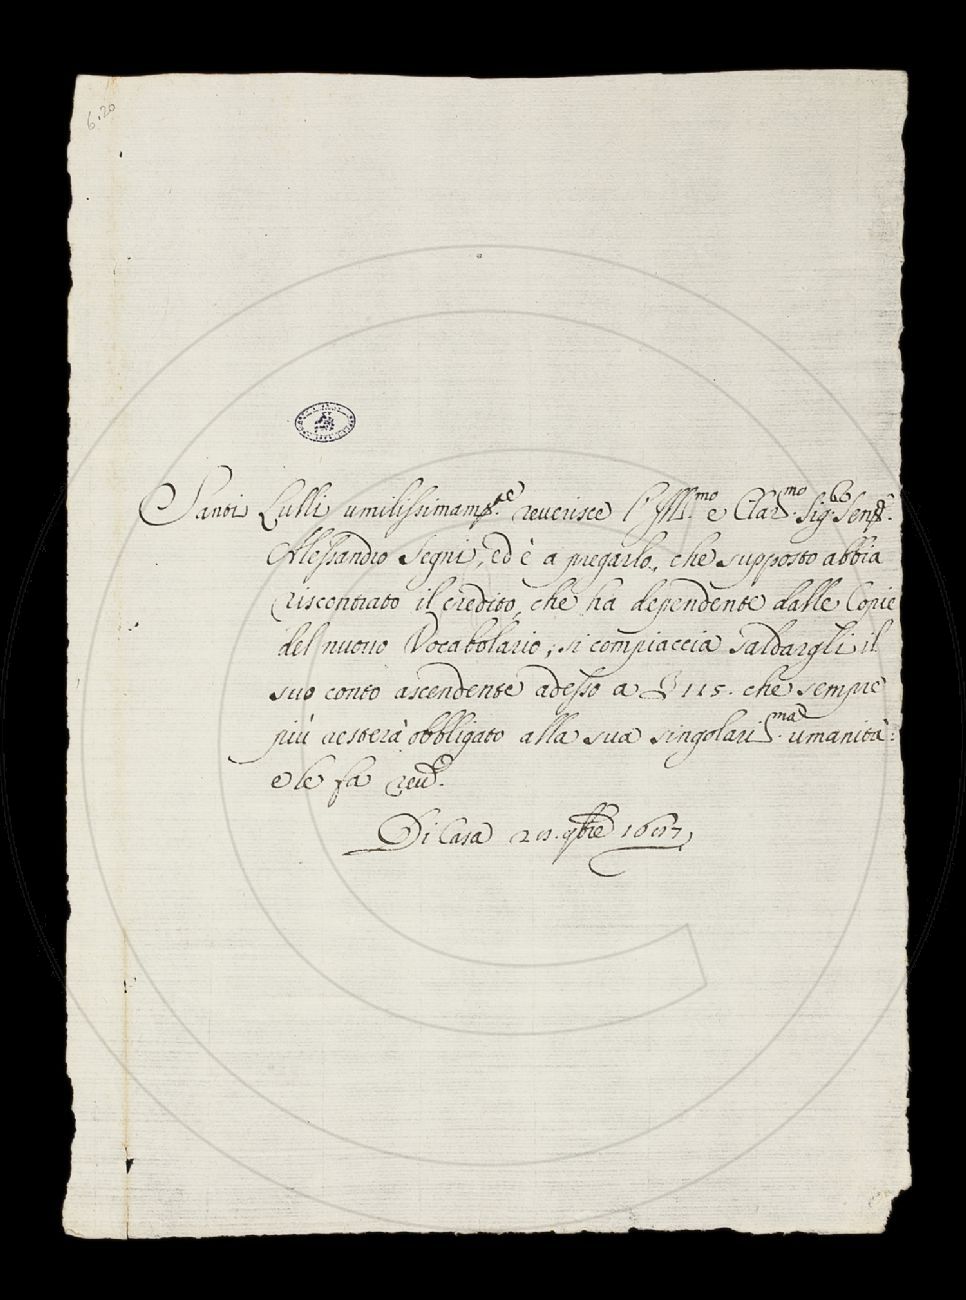 6.20
Santi Lulli umilissimam.te reverisce l'Ill.mo e Clar.mo Sig.
Alessandro Segni, ed è a pregarlo, che supposto abbia
riscontrato il credito, che ha dependente dalle Copie
del nuovo Vocabolario, si compiaccia saldargli il
suo conto ascendente adesso a 115. che sempre
più resterà obbligato alla sua singolaris.ma umanità:
e le fa
Di Casa 9bre